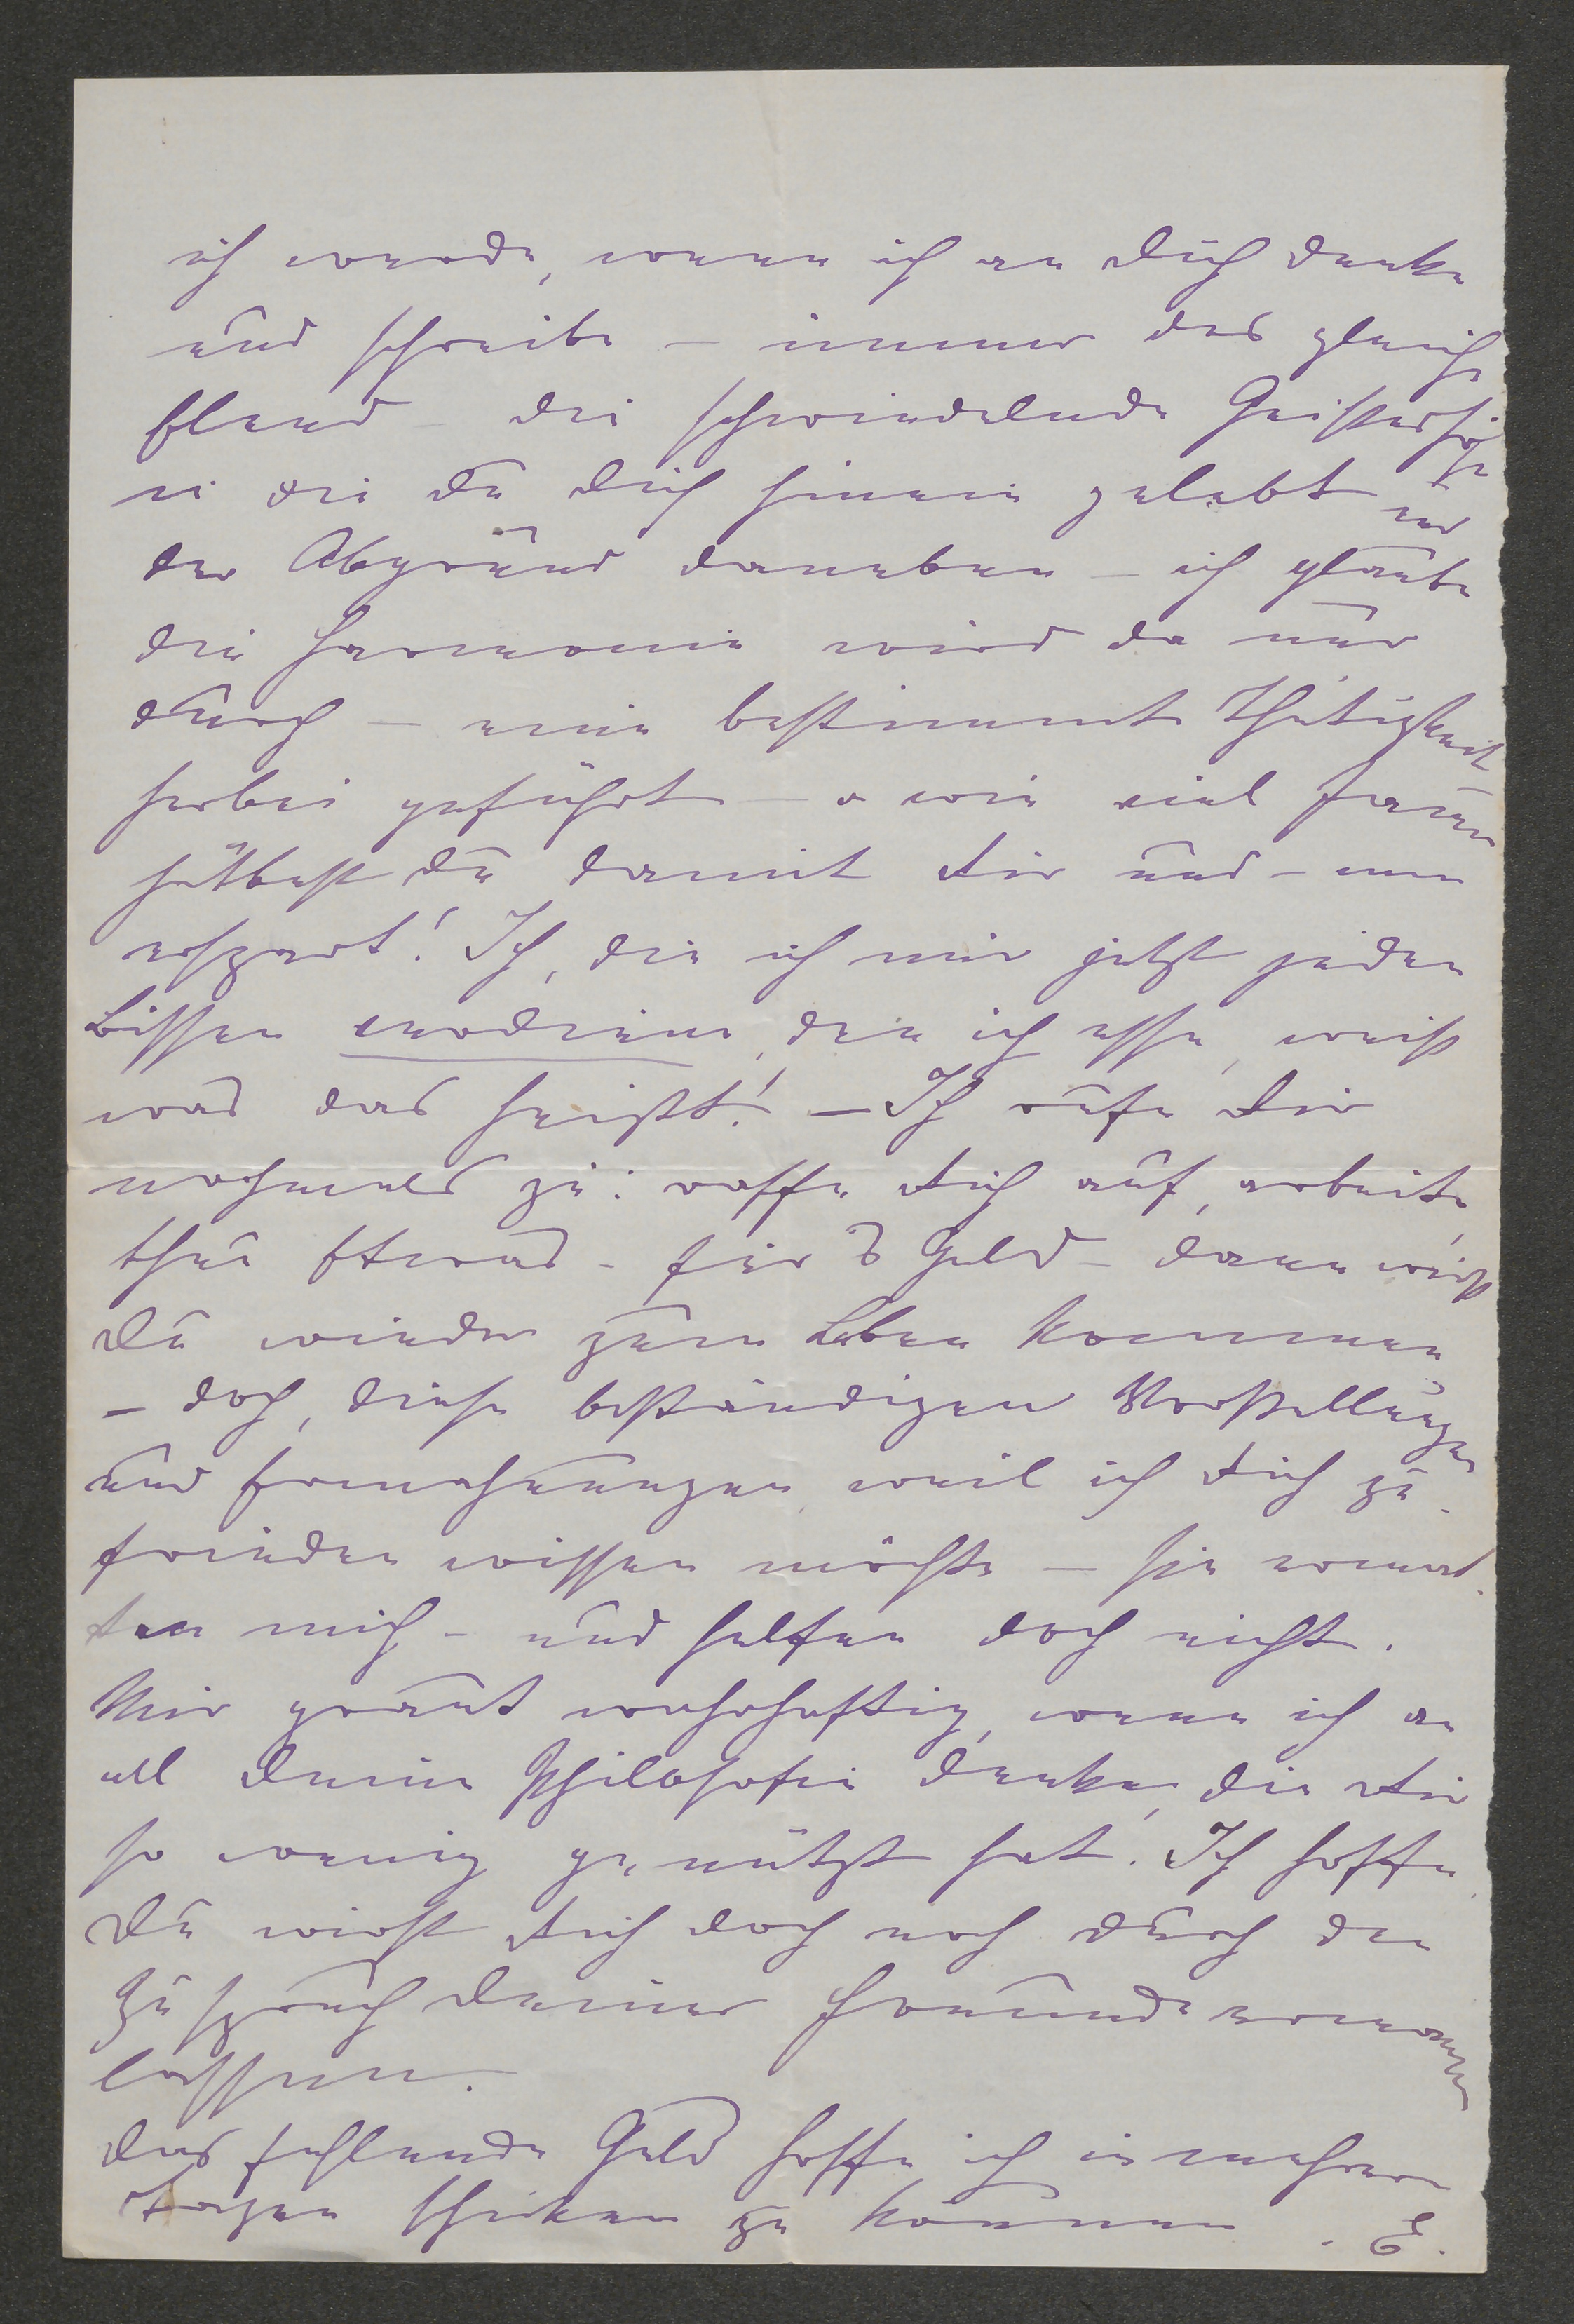 ich werde, wenn ich an Dich denke
und schreibe – immer das gleiche
Elend – die schwindelnde Geisterhöhe
in die Du Dich hinein gelebt und
der Abgrund daneben – ich glaube
die Harmonie wird da nur
durch – eine bestimmte Thätigkeit
herbei geführt – o wie viel Jammer
hättest Du damit Dir und – uns
erspart! Ich, die ich mir jetzt jeden
Bissen verdiene, den ich esse, weiß
was das heißt! – Ich rufe Dir
nochmals zu: raffe Dich auf, arbeite,
thue Etwas – für's Geld – dann wirst
Du wieder zum Leben kommen
– doch, diese beständigen Vorstellungen
und Ermahnungen weil ich Dich zu
frieden wissen möchte – sie ermat
ten mich – und helfen doch nicht.
Mir graut wahrhaftig, wenn ich an
all Deine Philosofie denke, die Dir
so wenig genützt hat. Ich hoffe,
Du wirst Dich doch noch durch den
Zuspruch Deiner Freunde ermannen
lassen.
Das fehlende Geld hoffe ich in mehren
Tagen schicken zu können. E.